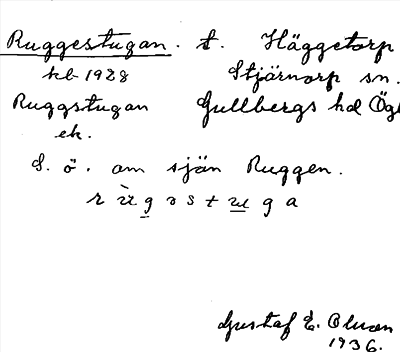 Ruggestugan. t. Häggetorp
kb 1928 Stjärnorp sn.
Ruggstugan Gullbergs hd Ögl
ek.
S. ö. om sjön Ruggen.
r ù g ɔ s t u g a
Gustaf E. Olsson
1936.